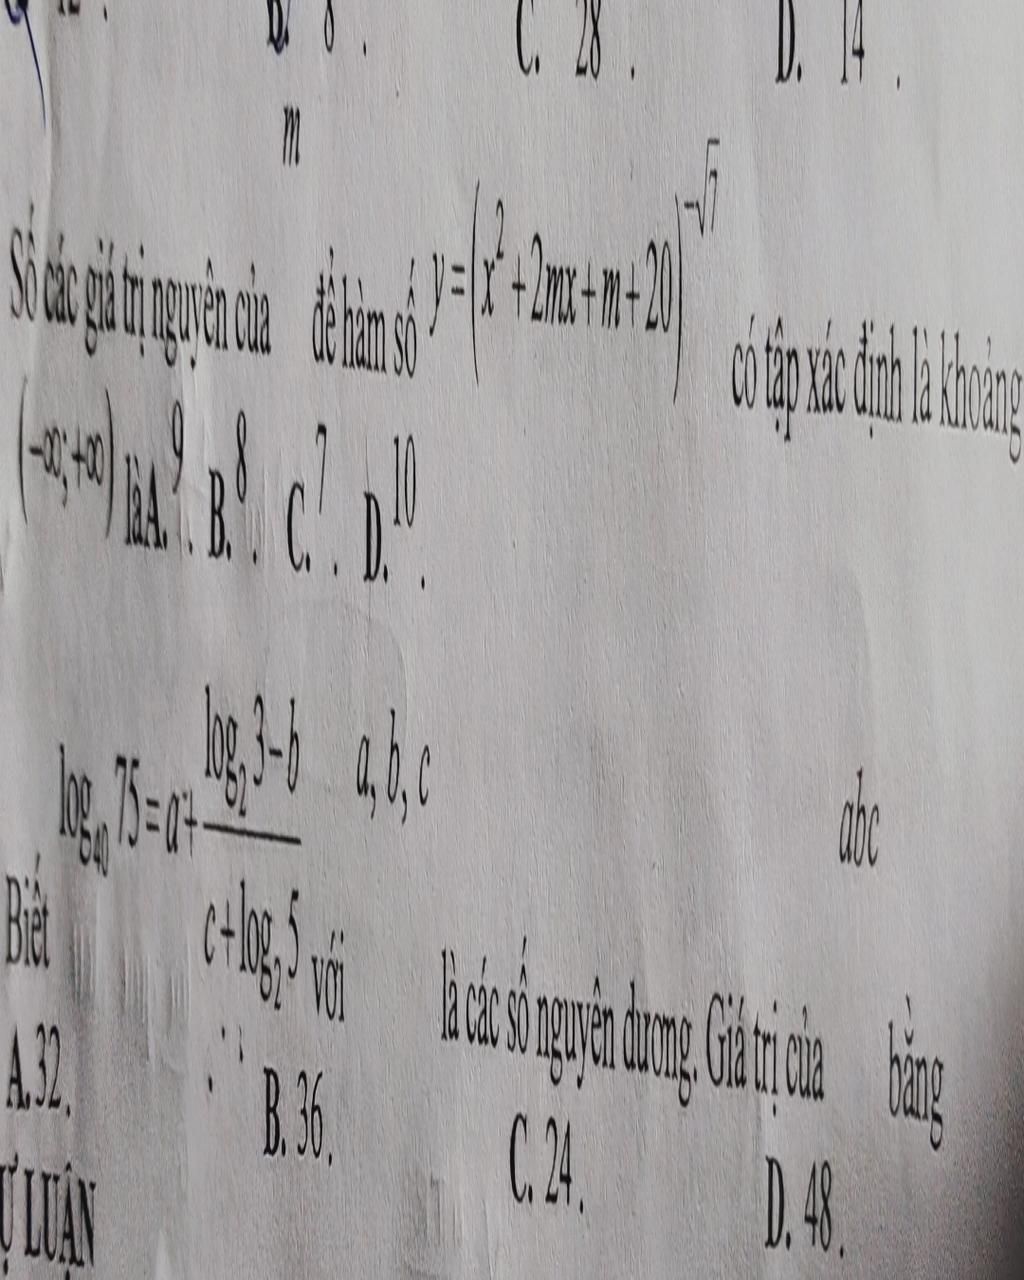 B. 8 . C. 28 . D. 14 .
m
Số các giá trị nguyên của để hàm số y = (x² + 2mx + m + 20)^{-√7} có tập xác định là khoảng
(-∞; +∞) là A. 9 . B. 8 . C. 7 . D. 10 .
Biết log₄₀ 75 = a + (log₂ 3 - b)/(c + log₂ 5) với a, b, c là các số nguyên dương. Giá trị của abc bằng
A. 32. B. 36. C. 24. D. 48.
Ự LUẬN